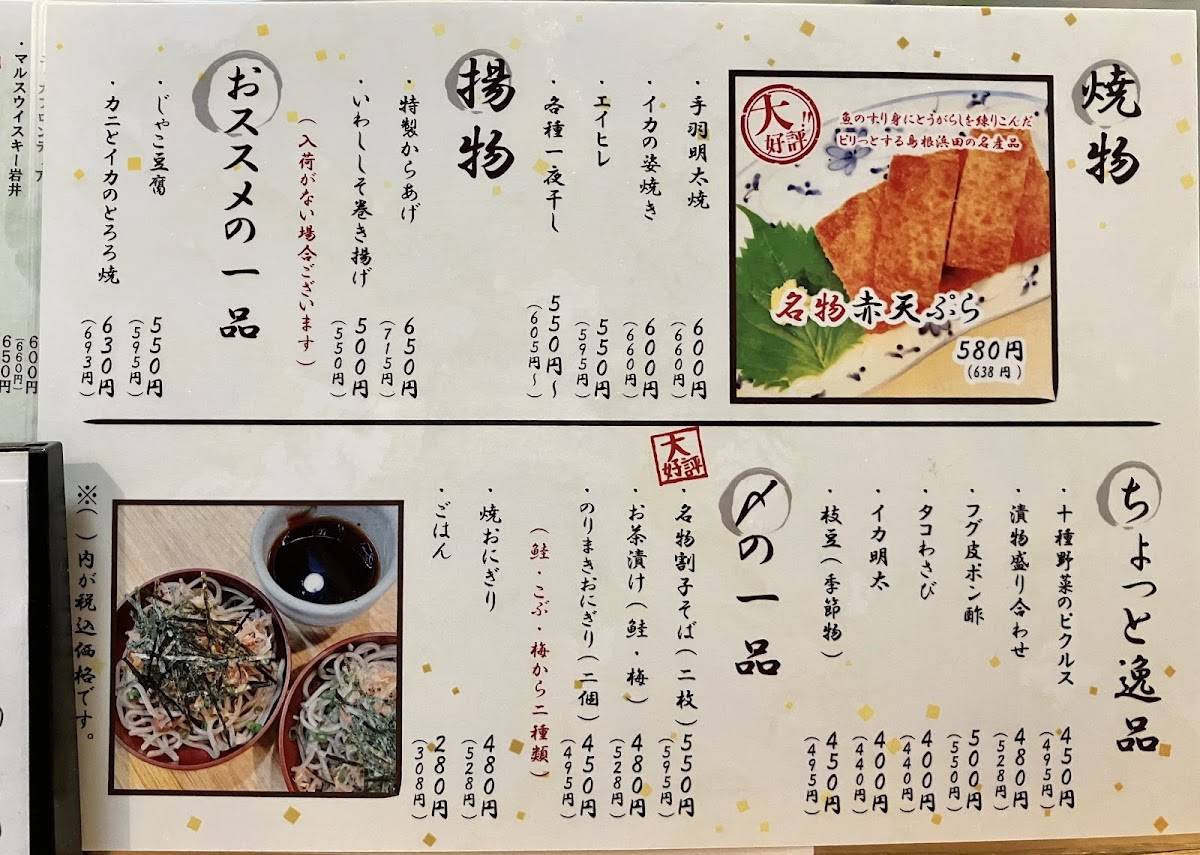 焼物
大好評!!
魚のすり身にとうがらしを練りこんだ
ピリっとする島根浜田の名産品
名物赤天ぷら
580円
(638円)
・手羽明太焼 600円(660円)
・イカの姿焼き 600円(660円)
・エイヒレ 550円(595円)
・各種一夜干し 550円〜(605円〜)
揚物
・特製からあげ 650円(715円)
・いわししそ巻き揚げ 500円(550円)
(入荷がない場合ございます)
おススメの一品
・じゃこ豆腐 550円(595円)
・カニとイカのとろろ焼 630円(693円)
ちょっと逸品
・十種野菜のピクルス 450円(495円)
・漬物盛り合わせ 480円(528円)
・フグ皮ポン酢 500円(550円)
・タコわさび 400円(440円)
・イカ明太 400円(440円)
・枝豆(季節物) 450円(495円)
〆の一品
大好評
・名物割子そば(二枚) 550円(595円)
・お茶漬け(鮭・梅) 480円(528円)
・のりまきおにぎり(二個) 450円(495円)
(鮭・こぶ・梅から二種類)
・焼おにぎり 480円(528円)
・ごはん 280円(308円)
※( )内が税込価格です。
・マルスウイスキー岩井
600円
(660円)
650円